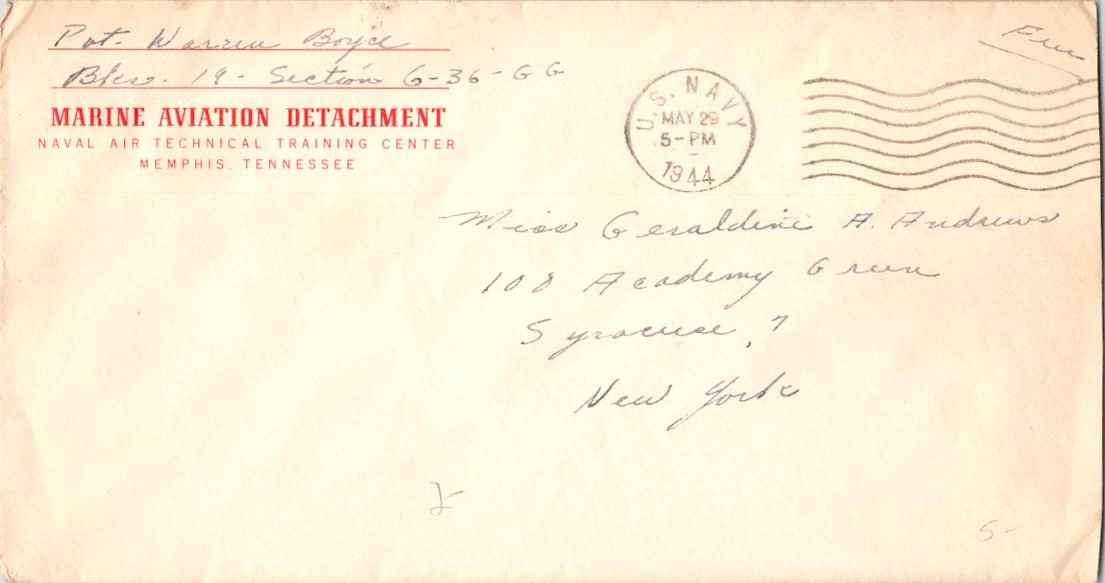 Pvt. Warren Boyce
Bks. 19 - Section 6-36-GG
MARINE AVIATION DETACHMENT
NAVAL AIR TECHNICAL TRAINING CENTER
MEMPHIS, TENNESSEE
U.S. NAVY
MAY 29
5-PM
1944
Free
Miss Geraldine A. Andrews
108 Academy Green
Syracuse, 7
New York
5-